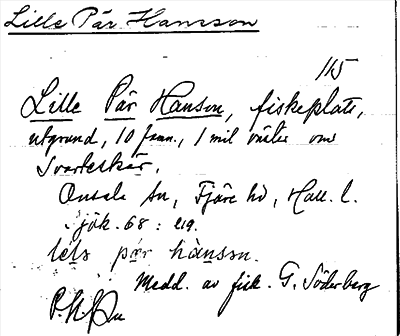 Lille Pär Hansson
115
Lille Pär Hanson, fiskeplats,
utgrund, 10 famn., 1 mil väster om
Svarteskär.
Onsala sn, Fjäre hd, Hall. l.
Sjök. 68 : 219.
lels pær hànson.
Medd. av fisk. G. Söderberg